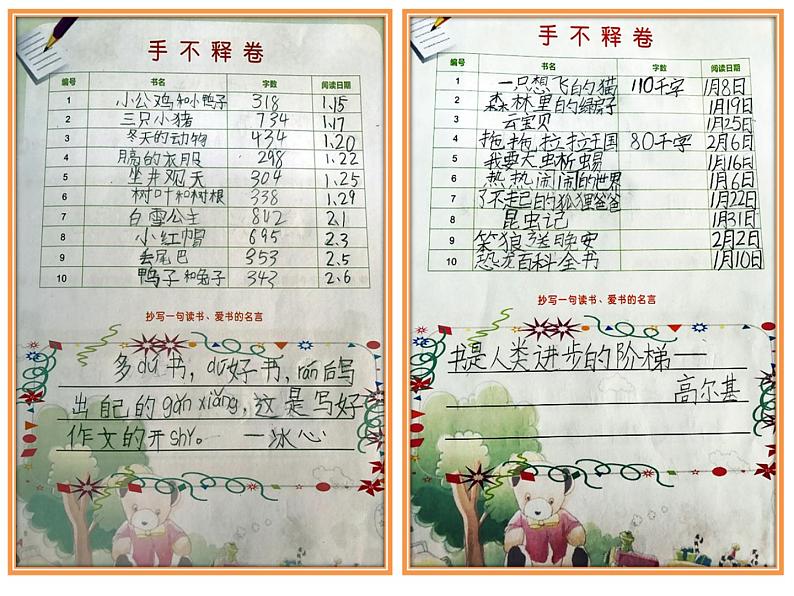 手不释卷
编号 书名 字数 阅读日期
1 小公鸡和小鸭子 318 1.15
2 三只小猪 734 1.17
3 冬天的动物 434 1.20
4 月亮的衣服 298 1.22
5 坐井观天 304 1.25
6 树叶和树根 338 1.29
7 白雪公主 802 2.1
8 小红帽 695 2.3
9 丢尾巴 353 2.5
10 鸭子和兔子 343 2.6
抄写一句读书、爱书的名言
多dú书，dú好书，rán后写
出自己的gǎn xiǎng，这是写好
作文的开shǐ。 —冰心
手不释卷
编号 书名 字数 阅读日期
1 一只想飞的猫 110千字 1月8日
2 森林里的绿房子 1月19日
3 云宝贝 1月25日
4 拖拖拉拉王国 80千字 2月6日
5 我要大虫斯蜴 1月16日
6 热热闹闹的世界 1月6日
7 了不起的狐狸爸爸 1月22日
8 昆虫记 1月31日
9 笨狼送晚安 2月2日
10 恐龙百科全书 1月10日
抄写一句读书、爱书的名言
书是人类进步的阶梯——
高尔基